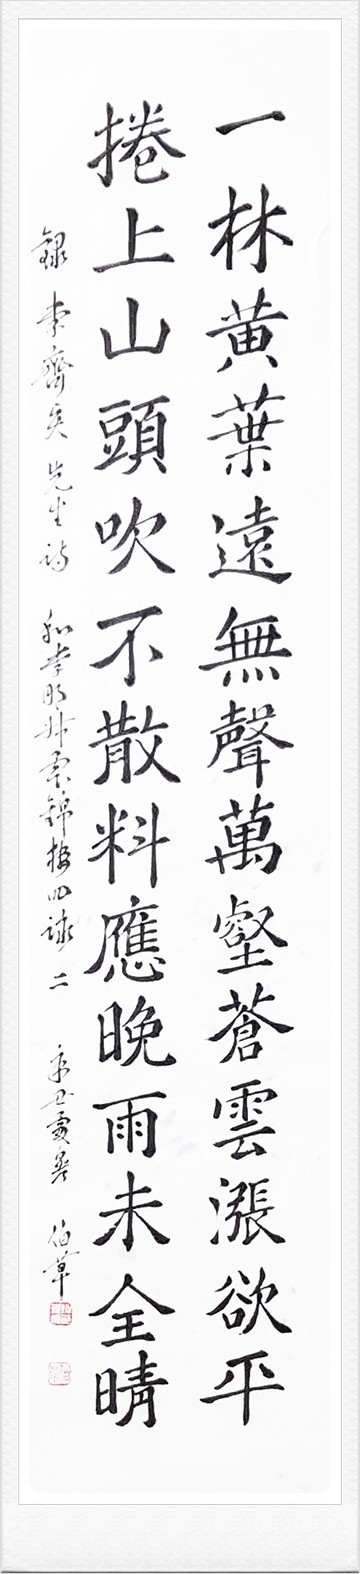 一林黃葉遠無聲萬壑蒼雲漲欲平
捲上山頭吹不散料應晚雨未全晴
錄李齊賢先生詩 和李明叔雲錦樓四詠 二 辛丑處暑 伯草